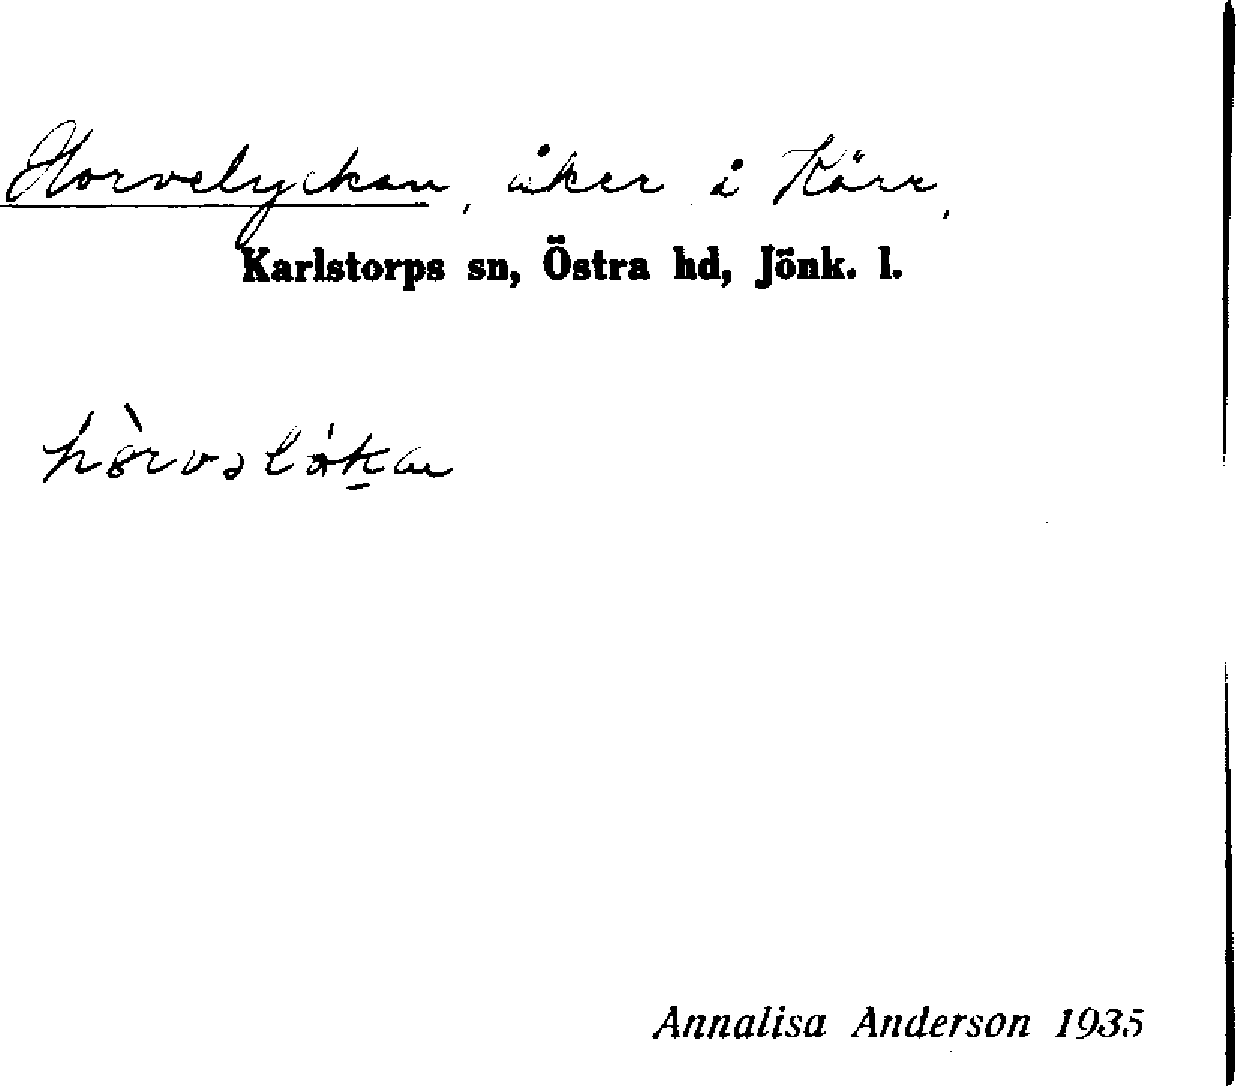 Horvelyckan, åker i Kärr,
Karlstorps sn, Östra hd, Jönk. l.
Annalisa Anderson 1935